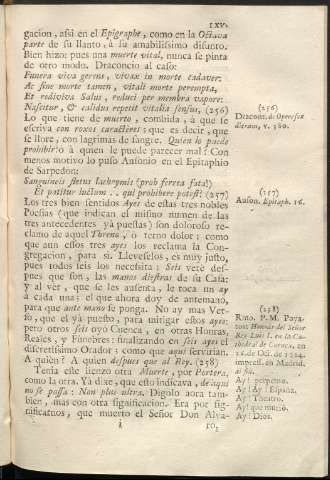 LXV.
gacion, assi en el Epigraphe, como en la Octava
parte de su llanto, à su amabilissimo difunto.
Bien hizo: pues una muerte vital, nunca se pinta
de otro modo. Draconcio al caso:
Funera viva gerens, vivax in morte cadaver:
Ac sine morte tamen, vitali morte perempta,
Et rediviva Salus, reduci per membra vapore:
Nascitur, & calidus repetit vitalia sensus, (256)
Lo que tiene de muerto, combida, à que se
escriva con roxos caractères: que es decir, que
se llore, con lagrimas de sangre. Quien lo puede
prohibir? ò à quien le puede parecer mal? Con
menos motivo lo puso Ausonio en el Epitaphio
de Sarpedon:
Sanguineis fletus lachrymis (proh ferrea fata!)
Et patitur luctum .. qui prohibere potest: (257)
Los tres bien sentidos Ayes de estas tres nobles
Poesias (que indican el mismo numen de las
tres antecedentes yà puestas) son doloroso re-
clamo de aquel Threno, ò terno dolor: como
que aun essos tres ayes los reclama la Con-
gregacion, para si. Lleveselos, es muy justo,
pues todos seis los necessita: Seis vetè des-
pues que son, las manos diestras de su Casa:
y al ver, que se les ausenta, le toca un ay
à cada una; el que ahora doy de antemano,
para que ante mano se ponga. No ay mas Ver-
so, que el yà puesto, para mitigar estos ayes;
pero otros seis oyò Cuenca, en otras Honras,
Reales, y Funebres: finalizando en seis ayes el
discretissimo Orador; como que aqui servirian.
A quien? A quien despues que al Rey. (258)
Tenia este lienzo otra Muerte, por Portera,
como la otra. Yà dixe, que esto indicava, de aqui
no se passa: Non plus ultra. Digolo aora tam-
bien, mas con otra significacion. Era por sig-
nificarnos, que muerto el Señor Don Alva-
i
ro,
(256)
Dracont. de Opere sex
dierum, v. 380.
(257)
Auson. Epitaph. 16.
(258)
Rmo. P. M. Poya-
tos: Honras del Señor
Rey Luis I. en la Ca-
thedral de Cuenca, en
16. de Oct. de 1724.
impress. en Madrid.
al fin.
Ay! perpetuo.
Ay! Ay! España.
Ay! Theatro.
Ay! que muriò.
Ay! Dios.